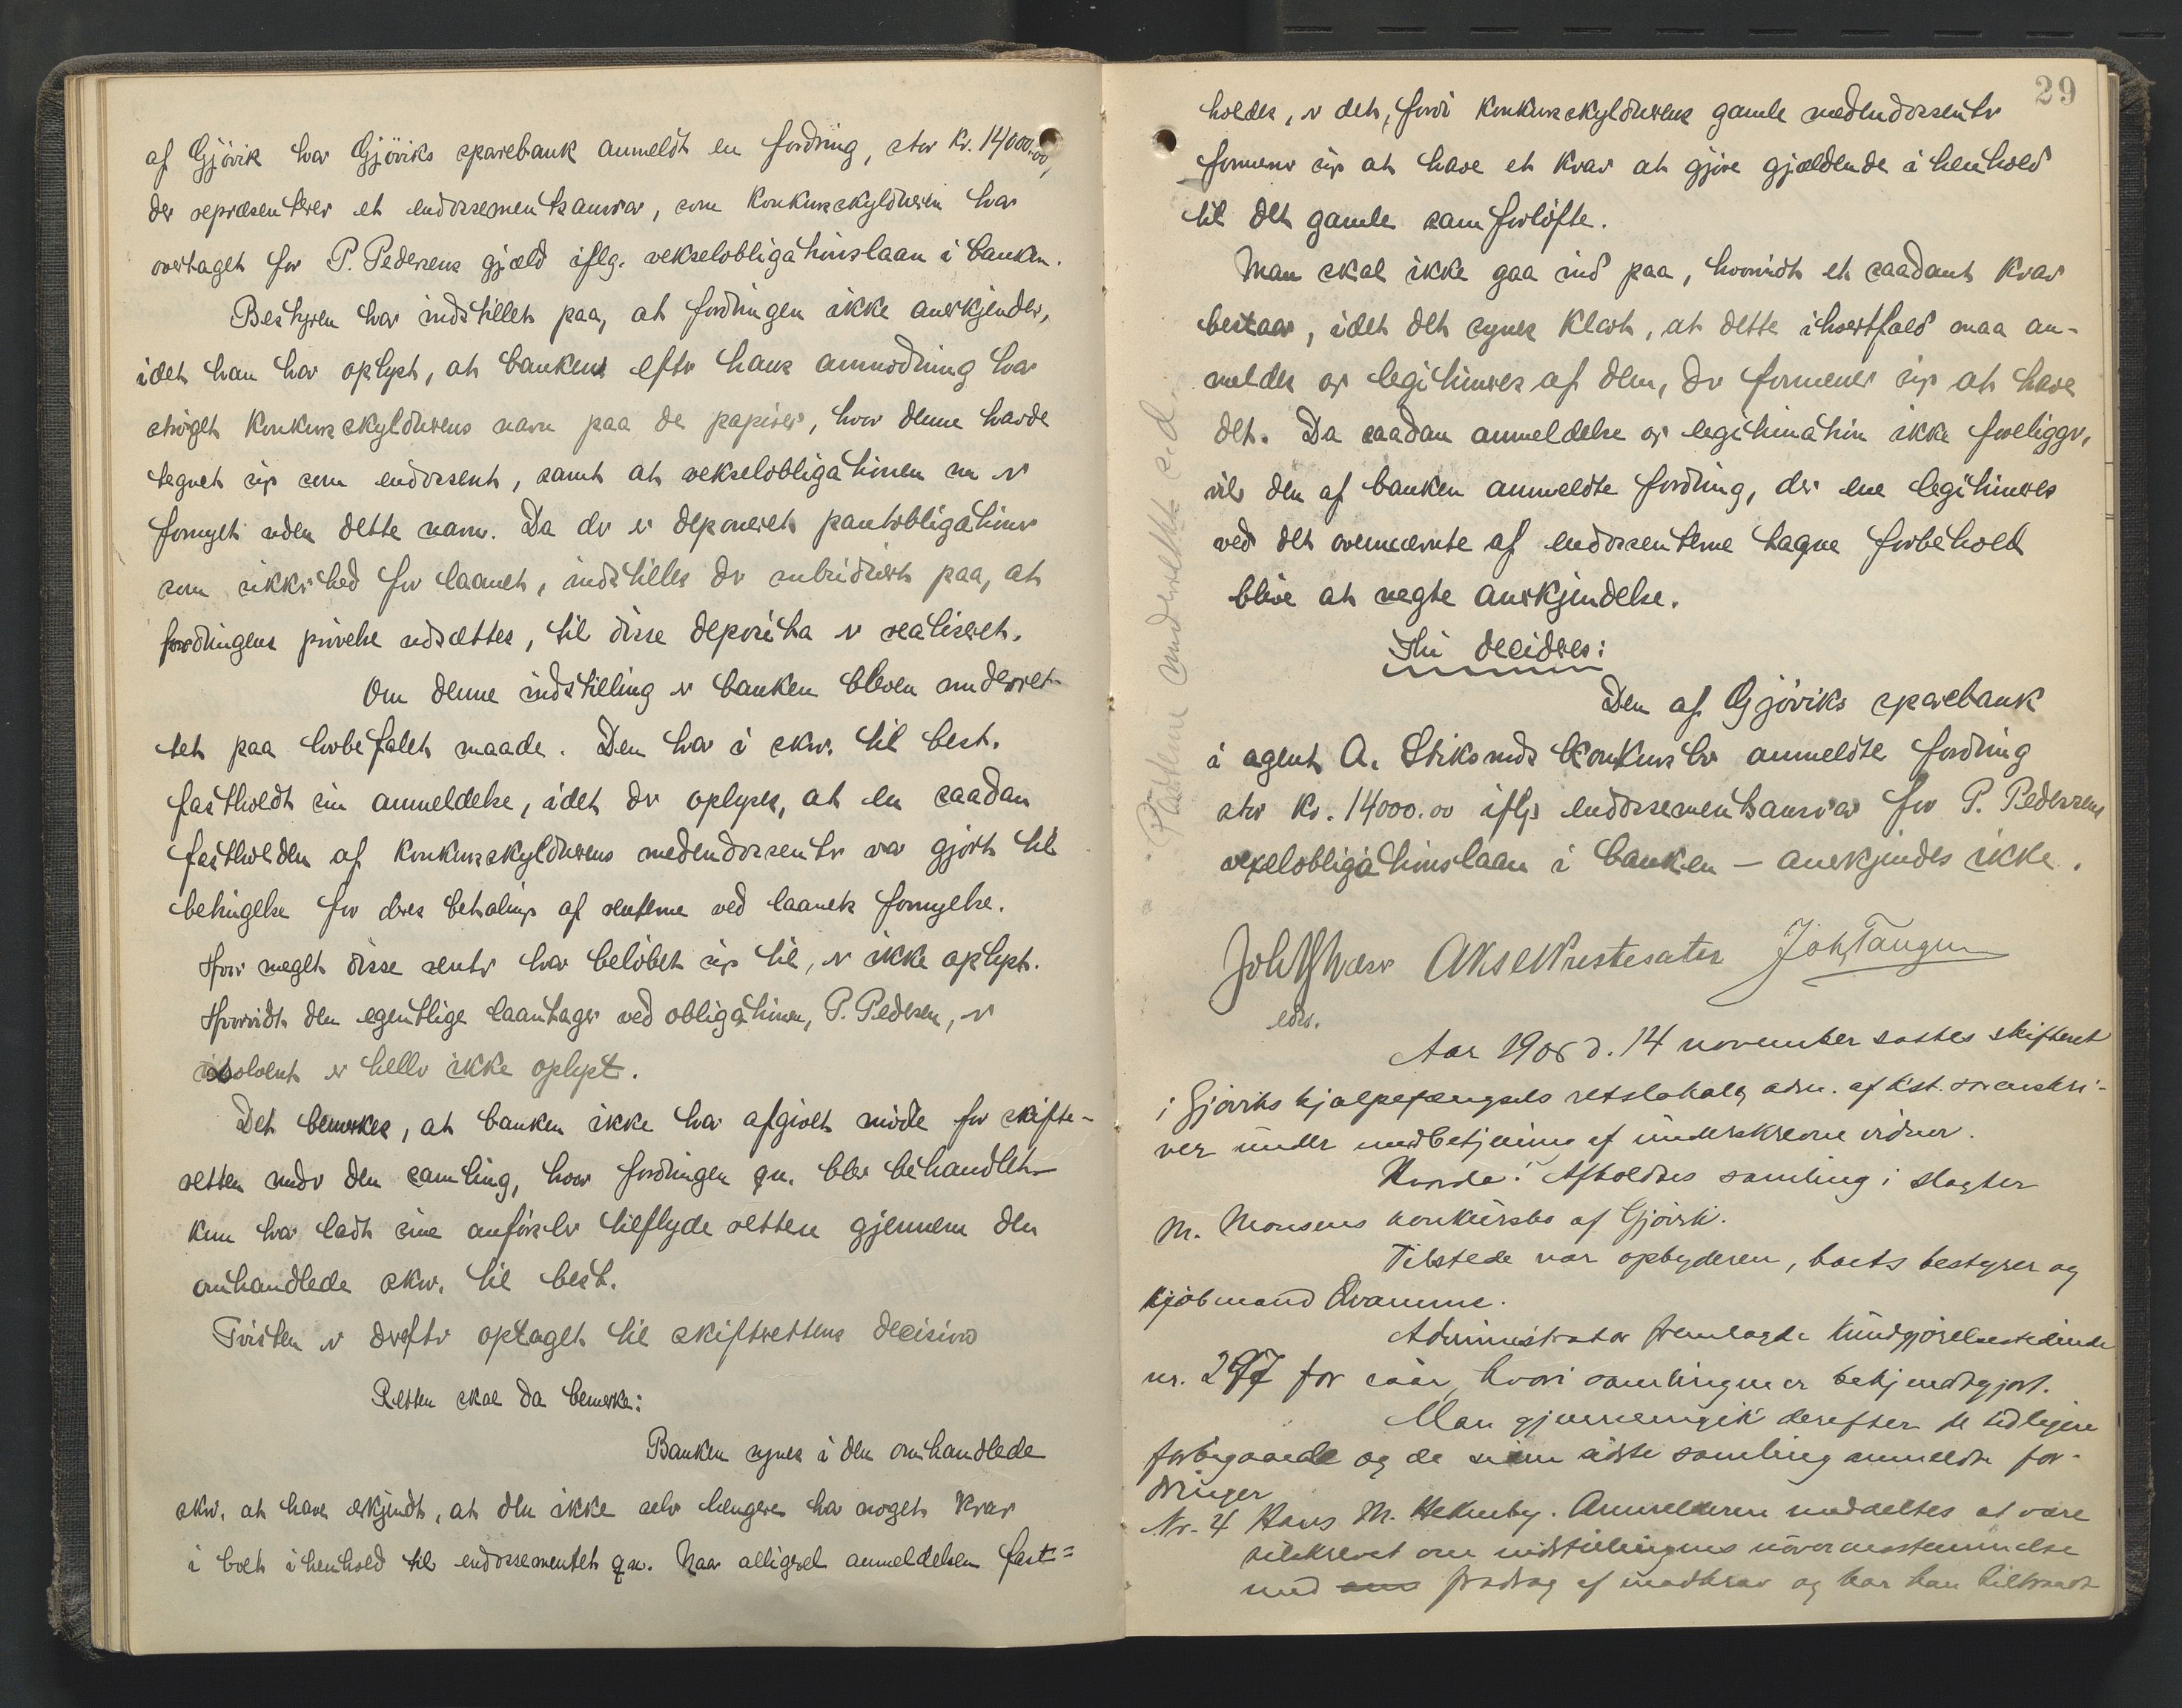 af Gjövik har Gjöviks sparebank anmeldt en fordring, stor kr. 14000.00,
der repræsenterer et endossementsansvar, som konkursskyldneren har
overtaget for P. Pedersens gjæld iflg. vekselobligationslaan i banken.
Bestyren har indstillet paa, at fordringen ikke anerkjendes,
idet han har oplyst, at banken efter hans anmodning har
strøget konkursskyldnerens navn paa de papirer, hvor denne havde
tegnet sig som endossent, samt at vekselobligationen nu er
fornyet uden dette navn. Da der er deponeret pantobligationer
som sikkerhed for laanet, indstilles der subsidiært paa, at
fordringens prövelse udsættes, til disse deposita er realiseret.
Om denne indstilling er banken bleven underret-
tet paa lovbefalet maade. Den har i skr. til best.
fastholdt sin anmeldelse, idet der oplyses, at en saadan
fastholden af konkursskyldnerens medendossenter var gjort til
betingelse for deres betaling af renterne ved laanets fornyelse.
Hvor meget disse renter har belöbet sig til, er ikke oplyst.
Hvorvidt den egentlige laantager ved obligationen, P. Pedersen, er
insolvent er heller ikke oplyst.
Det bemerkes, at banken ikke har afgivet möde for skifte-
retten under den samling, hvor fordringen qu. blev behandlet
kun har ladt sine anförsler tilflyde retten gjennem den
omhandlede skr. til best.
Tvisten er derefter optaget til skifterettens decision
Retten skal da bemerke:
Banken synes i den omhandlede
skr. at have erkjendt, at den ikke selv længere har noget krav
i boet i henhold til endossementet qu. Naar alligevel anmeldelsen fast=
29
holdes, er det, fordi konkursskyldnerens gamle medendossenter
formener sig at have et krav at gjöre gjældende i henhold
til det gamle samforlöfte.
Man skal ikke gaa ind paa, hvorvidt et saadant krav
bestaar, idet det synes klart, at dette ihvertfald maa an-
meldes og legitimeres af dem, der formener sig at have
det. Da saadan anmeldelse og legitimation ikke foreligger,
vil den af banken anmeldte fordring, der ene legitimeres
ved det ovennævnte af endossenterne tagne forbehold
blive at negte anerkjendelse.
Thi decideres:
Den af Gjöviks sparebank
i agent A. Stiksruds konkursbo anmeldte fordring
stor kr. 14000.00 iflg. endossementsansvar for P. Pedersens
vexelobligationslaan i banken – anerkjendes ikke.
Parterne underrettet s.d.
Aksel Kristesater Joh. Tangen
edsv.
Aar 1908 d. 14 november sattes skifteret
i Gjöviks hjælpefængsels retslokale, adm. af kst. sorenskri-
ver under medbetjening af underskrevne vidner.
Hvorda: Afholdtes samling i slagter
M. Monsens konkursbo af Gjövik.
Tilstede var opbyderen, boets bestyrer og
kjöbmand Kramme.
Administrator fremlagde kundgjörelsestidende
nr. 297 for iaar, hvori samlingen er bekjendtgjort.
Man gjennemgik derefter de tidligere
forbigaaede og de siden sidste samling anmeldte for-
dringer
Nr. 4 Hans M. Hekneby. Anmelderen meddeltes at være
tilskrevet om indstillingens uoverensstemmelse
med fradrag af modkrav og har han tiltraadt